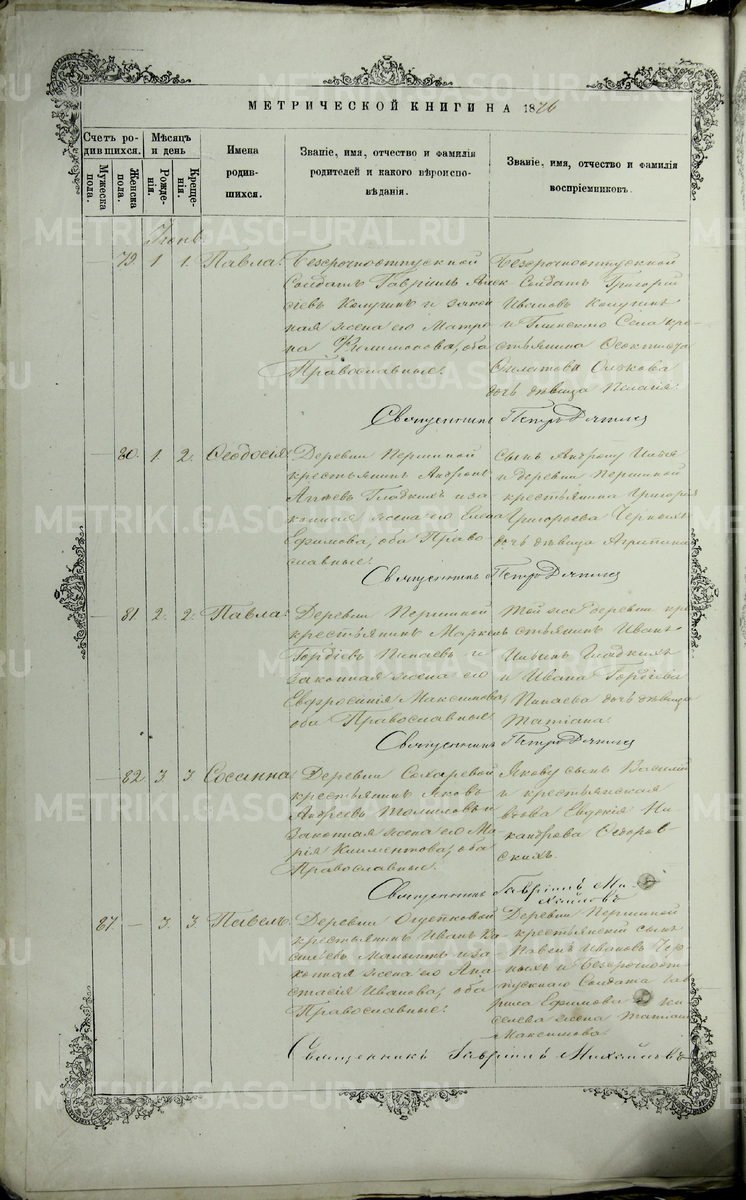 МЕТРИЧЕСКОЙ КНИГИ НА 1876
Счетъ родившихся.
Мѣсяцъ и день
Мужеска пола.
Женска пола.
Рожденія.
Крещенія.
Имена родившихся.
Званіе, имя, отчество и фамилія родителей и какого вѣроисповѣданія.
Званіе, имя, отчество и фамилія воспріемниковъ.
Іюнь
79 1. 1. Павла.
Безсрочноотпускной
Солдатъ Гавріилъ Алек
сѣевъ Колугинъ и закон
ная жена его Матро
на Филимонова, оба
Православные.
Безсрочноотпускной
Солдатъ Григорій
Ивановъ Колугинъ
и Глинскаго Села кре
стьянина Феоктиста
дочь дѣвица Пелагія.
Священникъ Петръ
80. 1. 2. Феодосія.
Деревни Першиной
крестьянинъ Андронъ
Гладкихъ и за
конная жена его
Ефимова, оба Право
славные.
Сынъ Андрону Илья
и деревни Першиной
крестьянина Григорія
Григорьева Черныхъ
дочь дѣвица Агрипина
Священникъ Петръ
81 2. 2. Павла.
Деревни Першиной
крестьянинъ Маркелъ
Гордіевъ Пинаевъ и
законная жена его
Евфросинія Максимова,
оба Православные.
Той же деревни кре
стьянинъ Иванъ
Ильинъ Гладкихъ
и Ивана Гордіева
Пинаева дочь дѣвица
Татіана.
Священникъ Петръ
82 3. 3 Сосанна
Деревни Сохаревой
крестьянинъ Яковъ
Андреевъ Томиловъ и
законная жена его Ма
рія Климентова, оба
Православные.
Якову сынъ Василій
и крестьянская
вдова Евдокія Ни
кандрова Федоров
скихъ.
Священникъ Гавріилъ Ми
хайловъ
87 — 3. 3. Павелъ.
Деревни Ощепковой
крестьянинъ Иванъ Ва
сильевъ Малыгинъ и за
конная жена его Ана
стасія Иванова, оба
Православные.
Деревни Першиной
крестьянскій сынъ
Павелъ Ивановъ Чер
ныхъ и безсрочноот
пускнаго Солдата
Ефимова Ки
селева жена Татіана
Максимова.
Священникъ Гавріилъ Михайловъ
METRIKI.GASO-URAL.RU